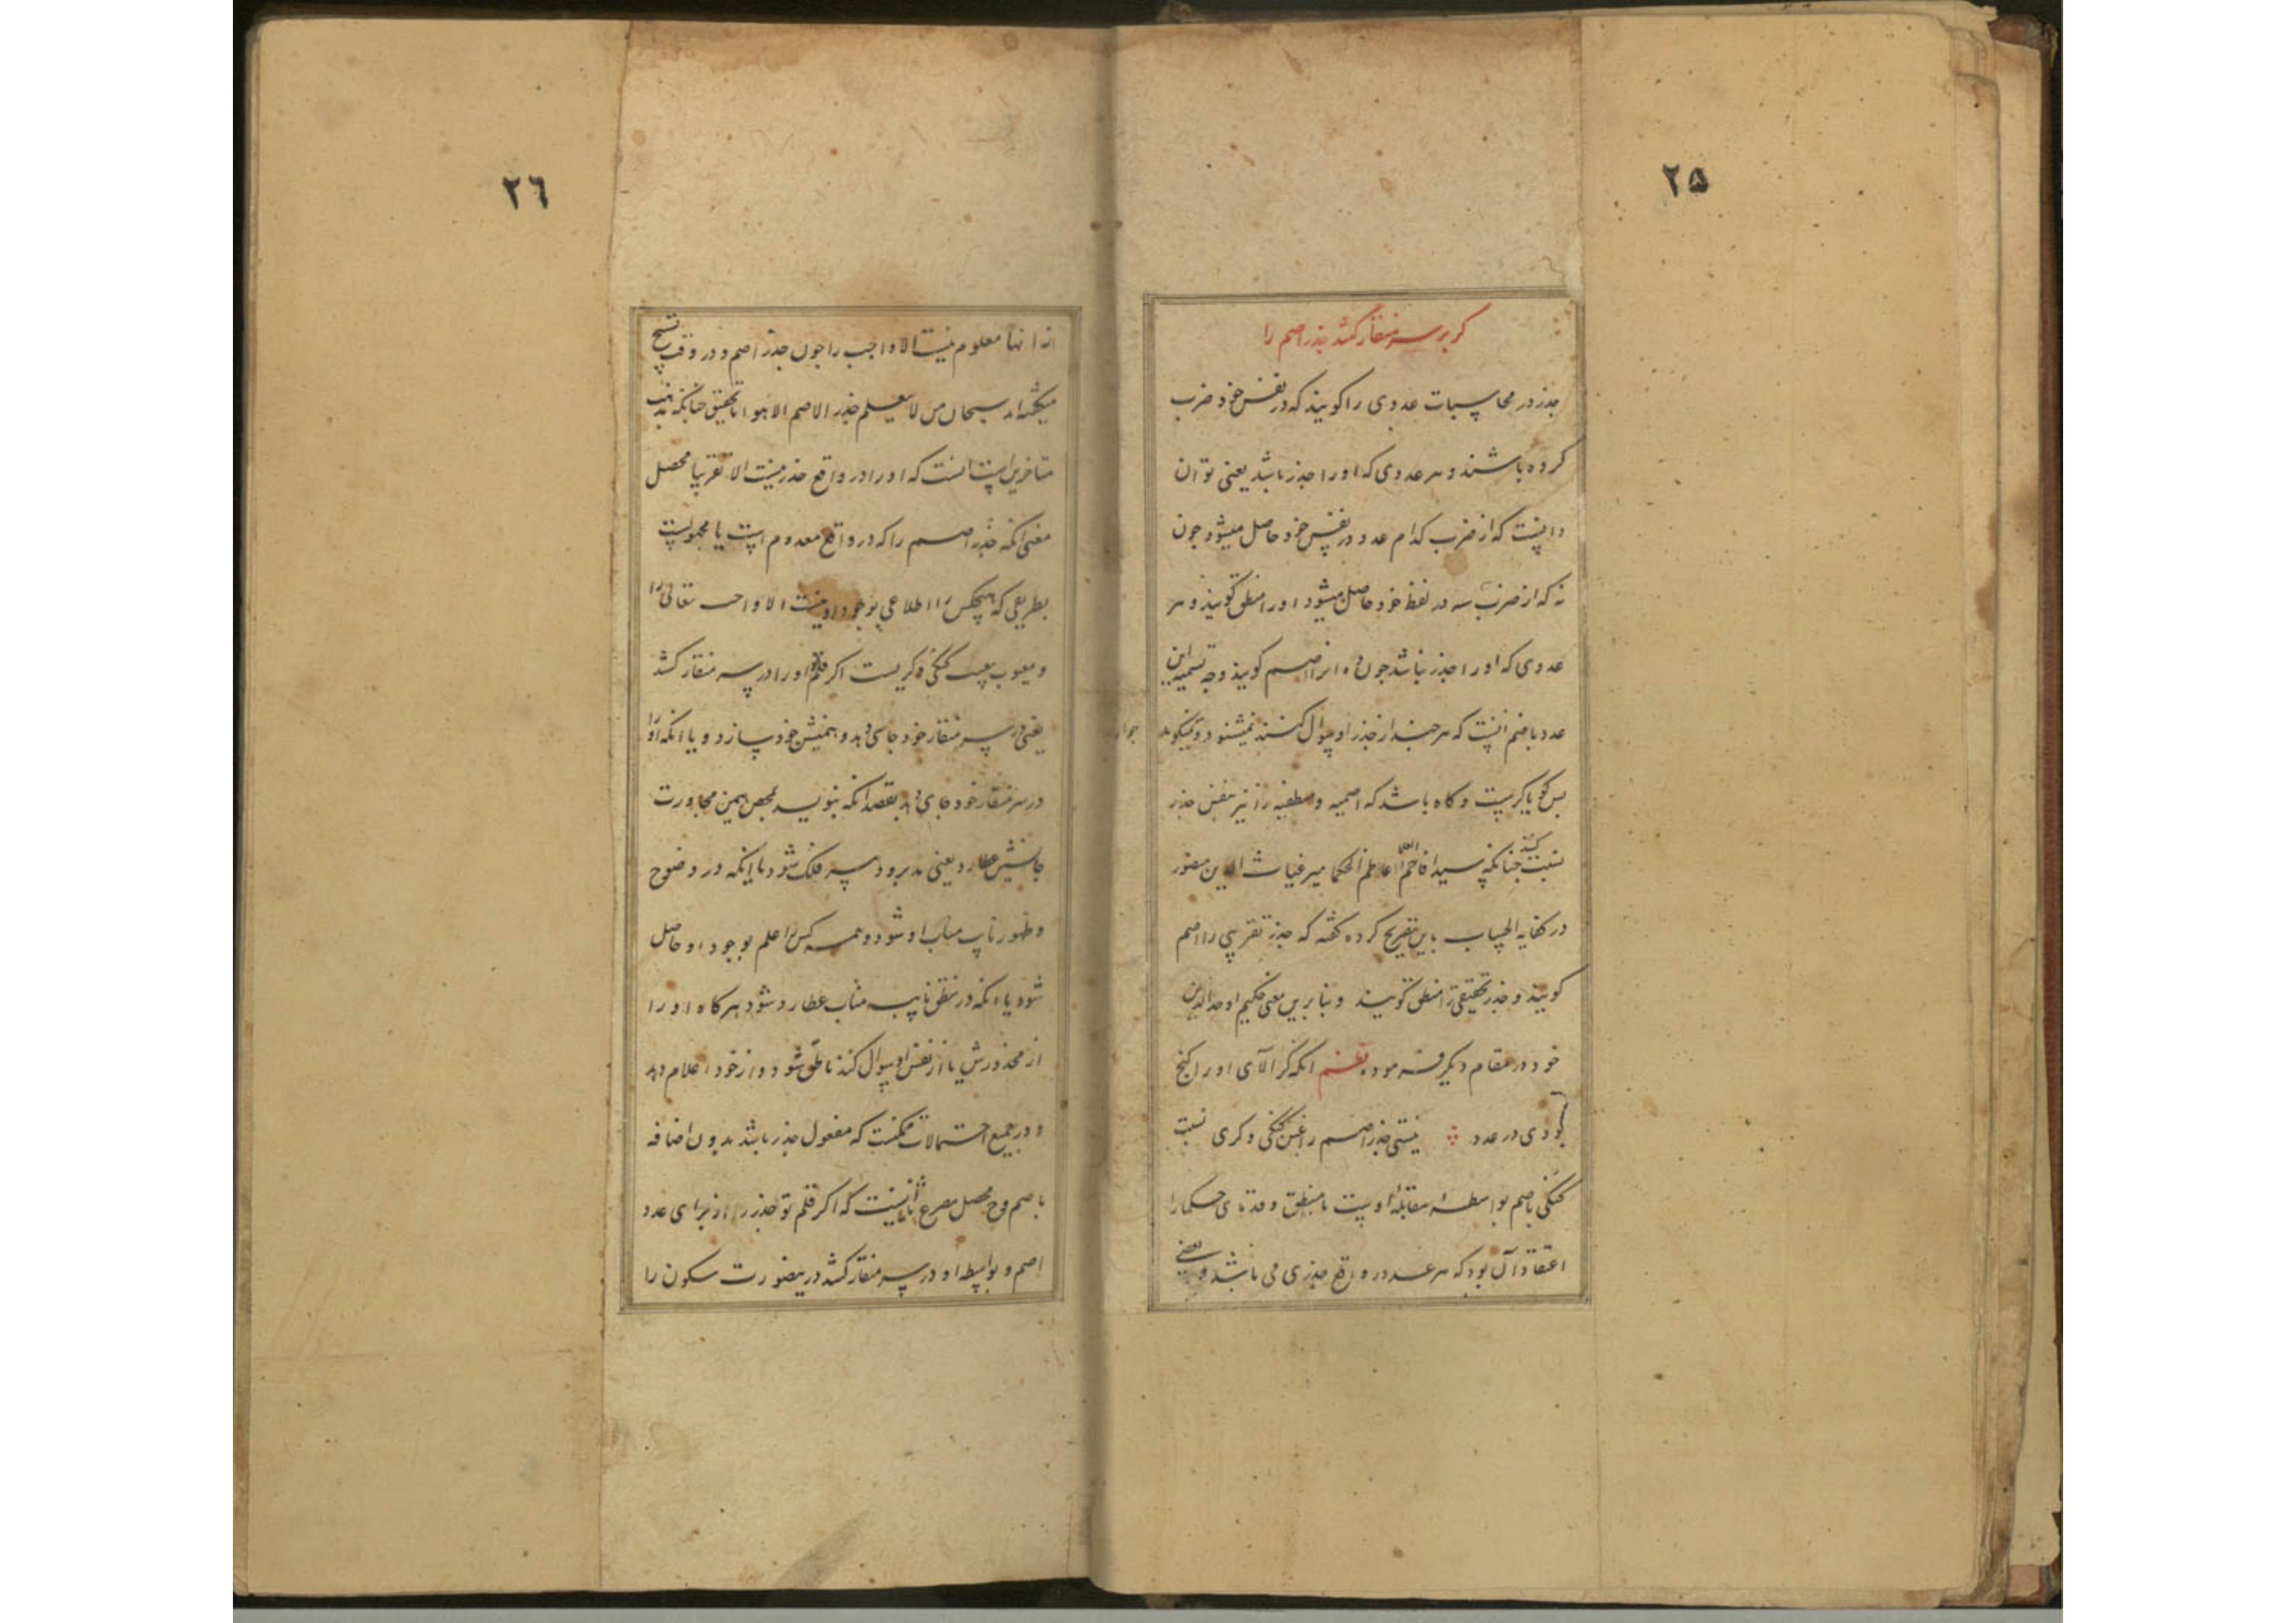 ۲۵
گر بر سر منقار کشد جذر اصم را
جذر در محاسبات عددی را کویند که در نفس خود ضرب
کرده باشند و هر عددی که او را جذر باشد یعنی توان
دانست که از ضرب کدام عدد در نفس خود حاصل میشود چون
نه که از ضرب سه در نفس خود حاصل میشود او را منطق کویند و هر
عددی که او را جذر نباشد چون ده انرا اصم کویند وجه تسمیه این
عدد باصم انست که هر چند از جذر او سوال کنند نمیشنود و نمیکوید جواب
پس کویا کریست و کاه باشد که اصمیه و منطقیه را نیز بنفس جذر
نسبت کنند چنانکه سید اعاظم الحکما میر غیاث الدین منصور
در کفایه الحساب باین تصریح کرده کفته که جذر تقریبی را اصم
کویند و جذر تحقیقی را منطق کویند و بنابرین معنی حکیم اوحد الدین
خود در مقام دیکر فرموده نظم انکه کر الآی او را کنج
بودی در عدد نیستی جذر اصم را غبن کنکی و کری نسبت
کنکی باصم بواسطه مقابله اوست با منطق و قدمای حکما را
اعتقاد آن بود که هر عدد در واقع جذری می باشد و بعضی
۲۶
از انها معلوم نیست الا واجب را چون جذر اصم و در وقت تسبیح
میکفته اند سبحان من لا یعلم جذر الاصم الا هو اما تحقیق چنانکه مذهب
متاخرین است انست که او را در واقع جذر نیست الا تقریبا محصل
معنی انکه جذر اصم را که در واقع معدوم است یا مجهولست
بطریقی که هیچکس را اطلاعی بوجود او نیست الا واجب تعالی را
و معیوب بعیب کنکی و کریست اکر قلم او را در سر منقار کشد
یعنی در سر منقار خود جای دهد و همنشین خود سازد و یا انکه او را
در سر منقار خود جای دهد بقصد انکه بنویسد بمحض همین مجاورت
جانشین عطارد یعنی مدبر و دبیر فلک شود یا اینکه در وضوح
و ظهور نایب مناب او شود و همه کس را علم بوجود او حاصل
شود یا انکه در نطق نایب مناب عطارد شود هر کاه او را
از مجذورش یا از نفس او سوال کنند ناطق شود و از خود اعلام دهد
و در جمیع احتمالات ممکنست که مفعول جذر باشد بدون اضافه
باصم و ح محصل مصرع ثانی اینست که اکر قلم تو جذر را از برای عدد
اصم و بواسطه او در سر منقار کشد درینصورت سکون را